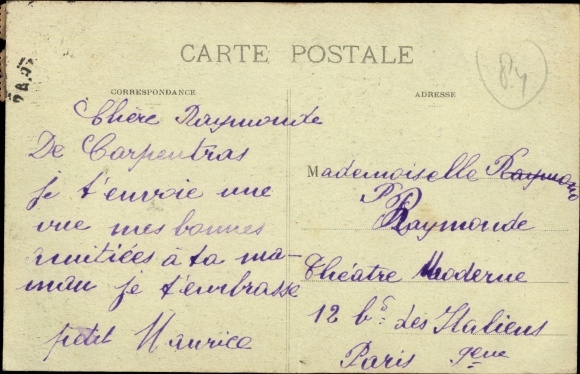 CARTE POSTALE
84
CORRESPONDANCE
Chère Raymonde
De Carpentras
je t'envoie une
vue mes bonnes
amitiées à ta ma-
man je t'embrasse
petit Maurice
ADRESSE
Mademoiselle Raymond
Raymonde
Théâtre Moderne
12 bd. des Italiens
Paris 9eme